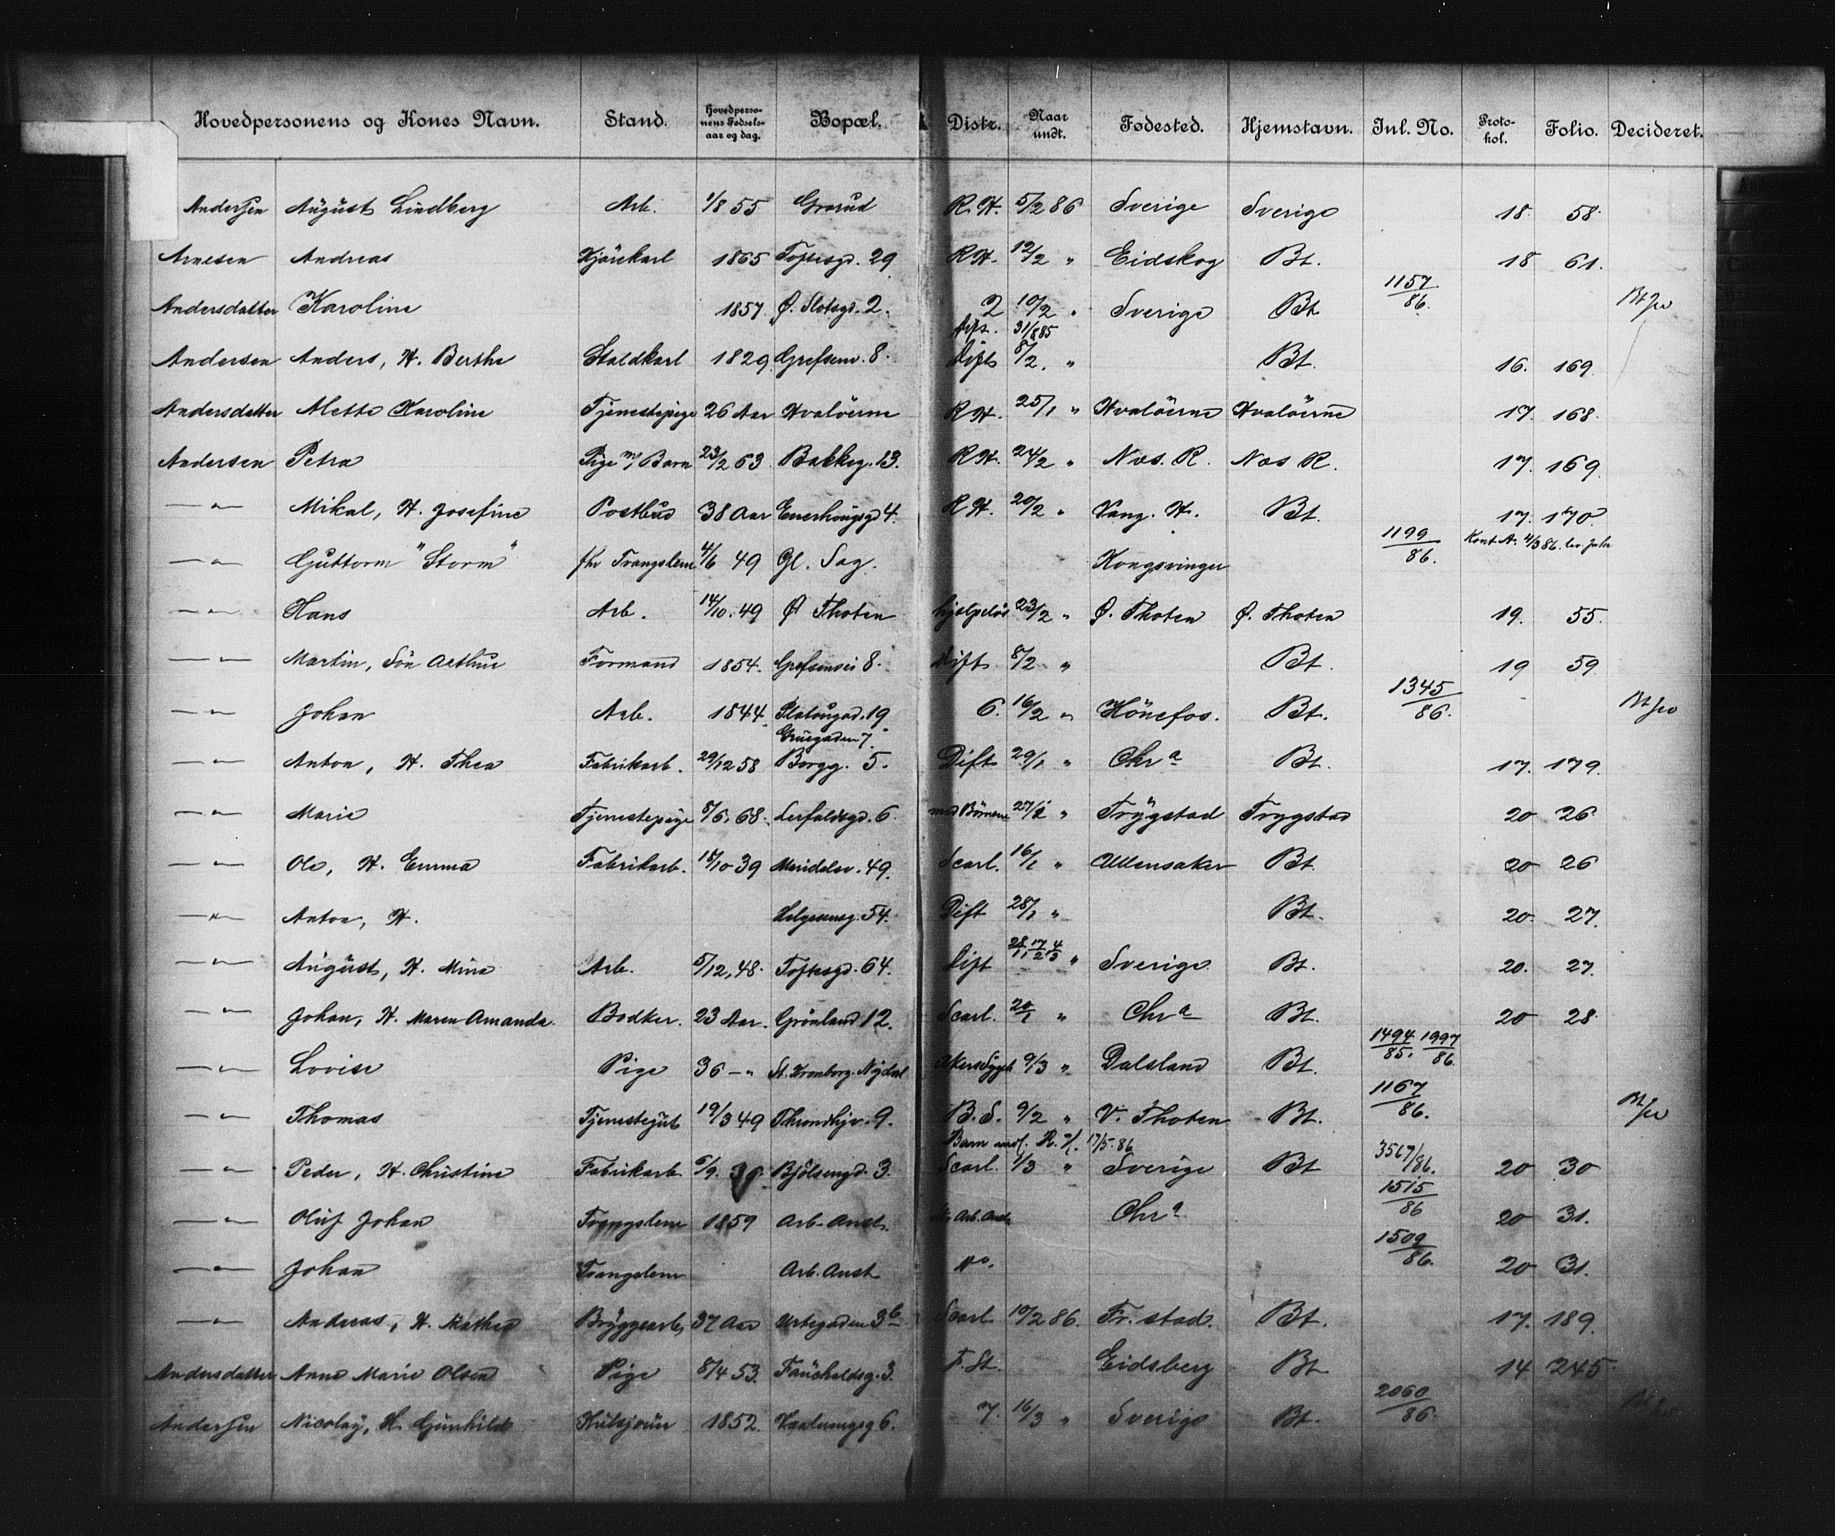 Hovedpersonens og Kones Navn. Stand. Hovedperso-nens Fødsels-aar og dag. Bopæl. Distr. Naar undt. Fødested. Hjemstavn. Inl. No. Proto-kol. Folio. Decideret.
Andersen August Lindberg Arb. 1/8 55 Grorud R.H. 5/2 86 Sverige Sverige 18 58.
Arnesen Andreas Kjörekarl 1865 Toftesgd. 29 R.H. 12/2 " Eidskog Bt. 18 61.
Andersdatter Karoline 1857. Ø. Slotsgd. 2. 2 10/2 " Sverige Bt 1157/86.
Dift. 31/8 85
Andersen Anders, H. Berthe Staldkarl 1829. Grefsenv. 8. Dift 8/2. " Bt. 16. 169.
Andersdatter Alette Karoline Tjenestepige 26 Aar Hvalöerne R.H. 25/1 " Hvalöerne Hvalöerne 17. 168.
Andersen Petra Pige m/ Barn 23/2 63. Bakkeg. 13. R.H. 24/2 " Næs. R. Næs R. 17. 169.
— " — Mikal, H. Josefine Postbud 38 Aar Enerhougsgd 4. R.H. 20/2 " Vang. H. Bt. 17. 170.
— " — Guttorm "Storm" fhv Tvangslem 4/6 49 Gl. Sag. Kongsvinger 1199/86. Kont. A. 4/3 86.
— " — Hans Arb. 14/10. 49 Ø Thoten hjælpelös 23/2 " Ø. Thoten Ø. Thoten 19. 55.
— " — Martin, Sön Arthur Formand 1854. Grefsenvei 8. Dift. 8/2 " Bt. 19 59
— " — Johan Arb. 1844. Platougad. 19 6. 16/2 " Hönefos. Bt. 1345/86.
Gruegaden 7.
— " — Anton, H. Thea Fabrikarb. 29/12 58 Borgg. 5. Dift 29/1 " Chra Bt. 17. 179.
— " — Marie Tjenestepige 8/6. 68. Lerfaldsgd. 6. med Børnene 27/2 " Trygstad Trygstad 20 26.
— " — Ole, H. Emma Fabrikarb. 18/10 39 Maridalsv. 49. Scarl. 16/1 " Ullensaker Bt. 20 26
— " — Anton, H. Helgesensg. 54. Dift 28/1 " Bt. 20. 27.
— " — August, H. Mina Arb. 5/12, 48. Toftesgd. 64. Dift 28/1 17/2 4/3 " Sverige Bt. 20. 27.
— " — Johan, H. Maren Amanda. Bødker. 23 Aar. Grönland 12. Scarl. 20/1 " Chra Bt. 20 28.
— " — Lovise Pige 36 — " St. Kronborg. Nydal Akers Sygeh 9/3 " Dalsland Bt. 1494/85. 1997/86
— " — Thomas Tjenestegut 19/3 49 Throndhjv. 9. B.S. 9/2 " V. Thoten Bt. 1167/86.
Barn undf. R.H. 17/5. 86
— " — Peder, H. Christine Fabrikarb. 5/9. 39. Bjölsengd. 3. Scarl. 1/3 " Sverige Bt 3567/86. 20 30
— " — Oluf Johan Tvangslem 1859 Arb. Anst. Arb. Anst. Chra 1515/86 20 31.
— " — Johan Tvangslem Arb. Anst. 1509/86. 20 31.
— " — Andreas, H. Mathea Bryggearb. 37 Aar Urtegaden 36 Scarl. 10/2 86. Fr.stad. Bt. 17. 189.
Andersdatter Anne Marie Olsen Pige 8/4 53. Fauchaldsg. 3. F. St. Eidsberg Bt 14 245.
Andersen Nicolay, H. Gunhild 1852. Vaalerengg 6. 7. 16/3 " Sverige Bt. 2060/86.